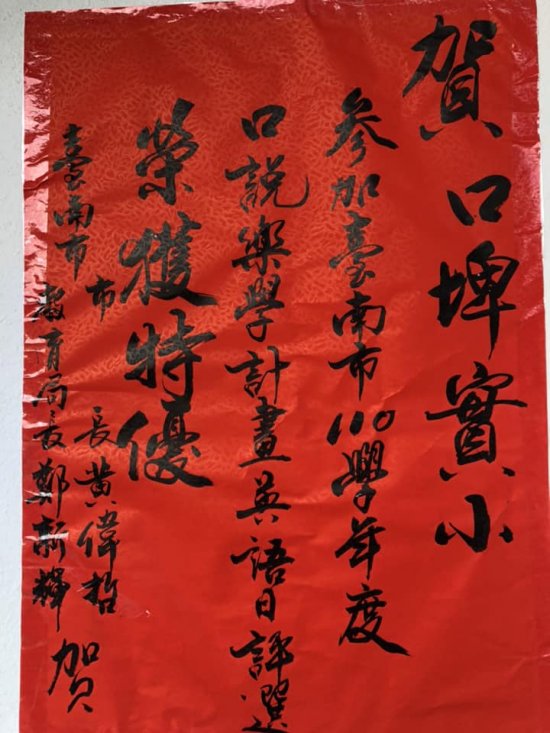 賀 口埤實小
參加臺南市110學年度
口說樂學計畫英語日評選
榮獲特優
臺南市 市長黃偉哲
教育局長鄭新輝 賀